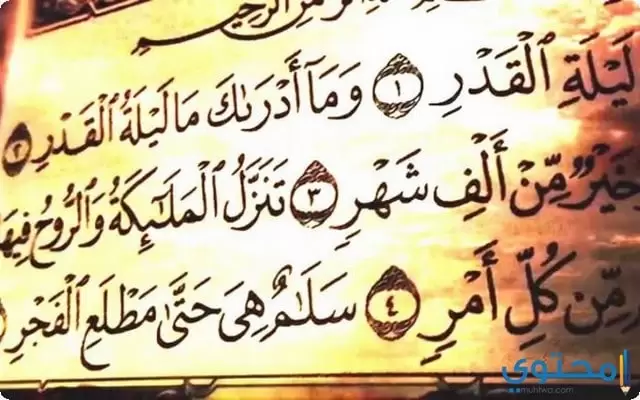 الرحيم
لَيْلَةِ ٱلْقَدْرِ ١ وَمَآ أَدْرَىٰكَ مَا لَيْلَةُ ٱلْقَدْرِ ٢
خَيْرٌ مِّنْ أَلْفِ شَهْرٍ ٣ تَنَزَّلُ ٱلْمَلَـٰٓئِكَةُ وَٱلرُّوحُ فِيهَا
مِّن كُلِّ أَمْرٍ ٤ سَلَـٰمٌ هِىَ حَتَّىٰ مَطْلَعِ ٱلْفَجْرِ
محتوى
muhtwa.com